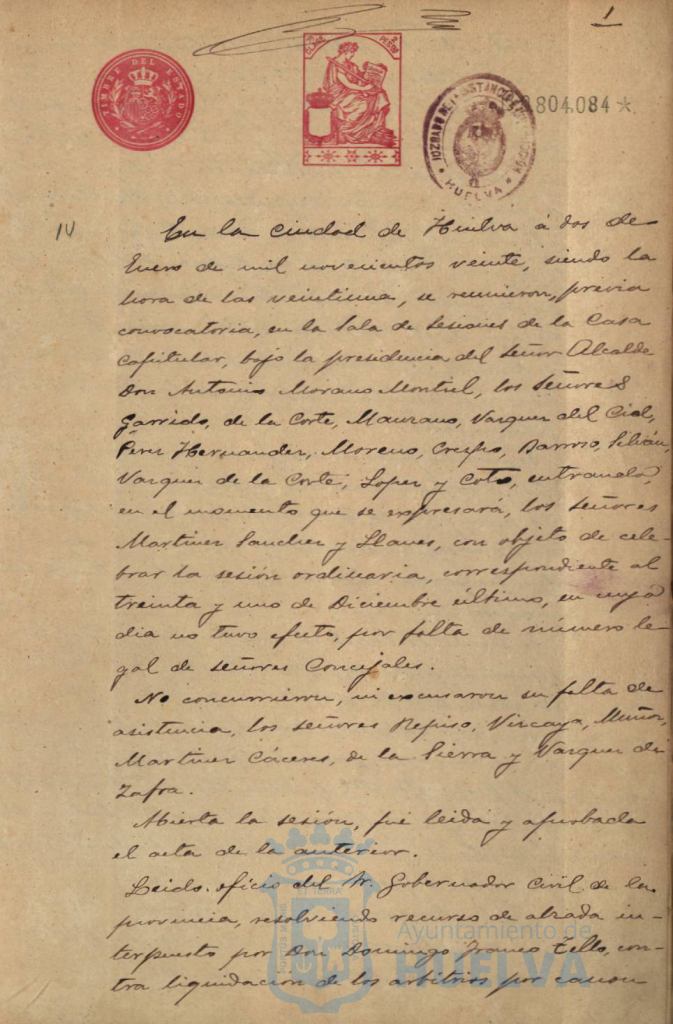 1
TIMBRE DEL ESTADO
CLASE PESETAS
JUZGADO DE 1ª INSTANCIA HUELVA
804.084 *
En la ciudad de Huelva á dos de
Enero de mil novecientos veinte, siendo la
hora de las veintiuna, se reunieron, previa
convocatoria, en la Sala de Sesiones de la Casa
Capitular, bajo la presidencia del Señor Alcalde
Don Antonio Morano Montiel, los Señores
Garrido, de la Corte, Manzano, Vazquez del Cid,
Perez Hernandez, Moreno, Crespo, Barroso, Silván,
Vazquez de la Corte, Lopez y Coto, entrando,
en el momento que se expresará, los señores
Martinez Sanchez y Llanes, con objeto de cele-
brar la sesión ordinaria, correspondiente al
treinta y uno de Diciembre último, en cuyo
dia no tuvo efecto, por falta de número le-
gal de señores Concejales.
No concurrieron, ni excusaron su falta de
asistencia, los señores Repiso, Vizcaya, Muñoz,
Martinez Cáceres, de la Sierra y Vazquez de
Zafra.
Abierta la sesión, fué leida y aprobada
el acta de la anterior.
Leido oficio del Sr. Gobernador Civil de la
provincia, resolviendo recurso de alzada in-
terpuesto por Don Domingo Franco Tello, con-
tra liquidacion de los arbitrios por canon
Ayuntamiento de
HUELVA